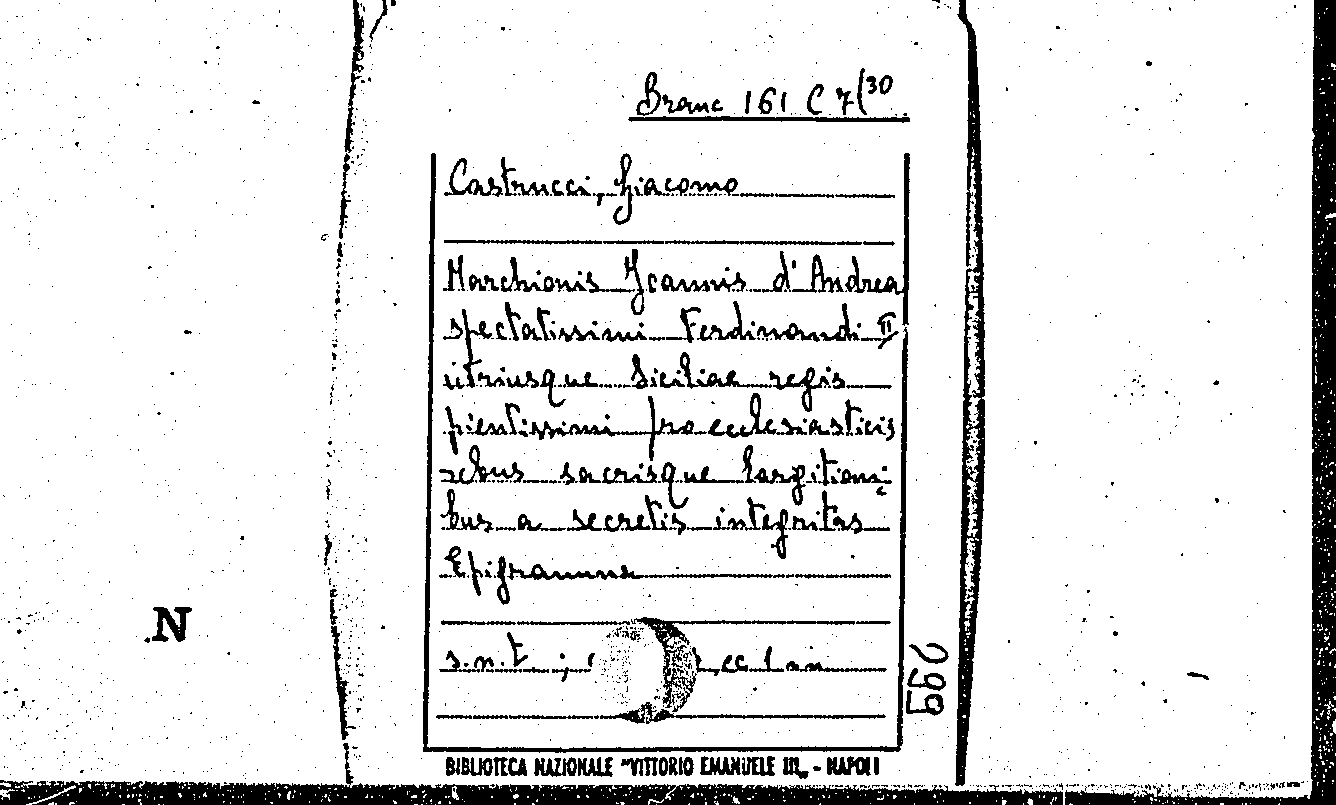 Branc 161 C 7(30
Castrucci, Giacomo
Marchionis Joannis d'Andrea
spectatissimi Ferdinandi II
utriusque Siciliae regis
pientissimi pro ecclesiasticis
rebus sacrisque largitioni
bus a secretis integritas
Epigramma
s.n.t. ;
299
N
BIBLIOTECA NAZIONALE "VITTORIO EMANUELE III" - NAPOLI